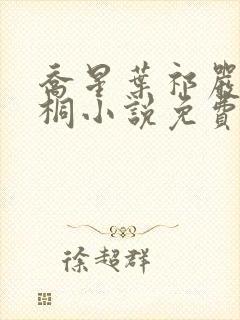 喬星葉祁嚴
桐小說免費
徐超群